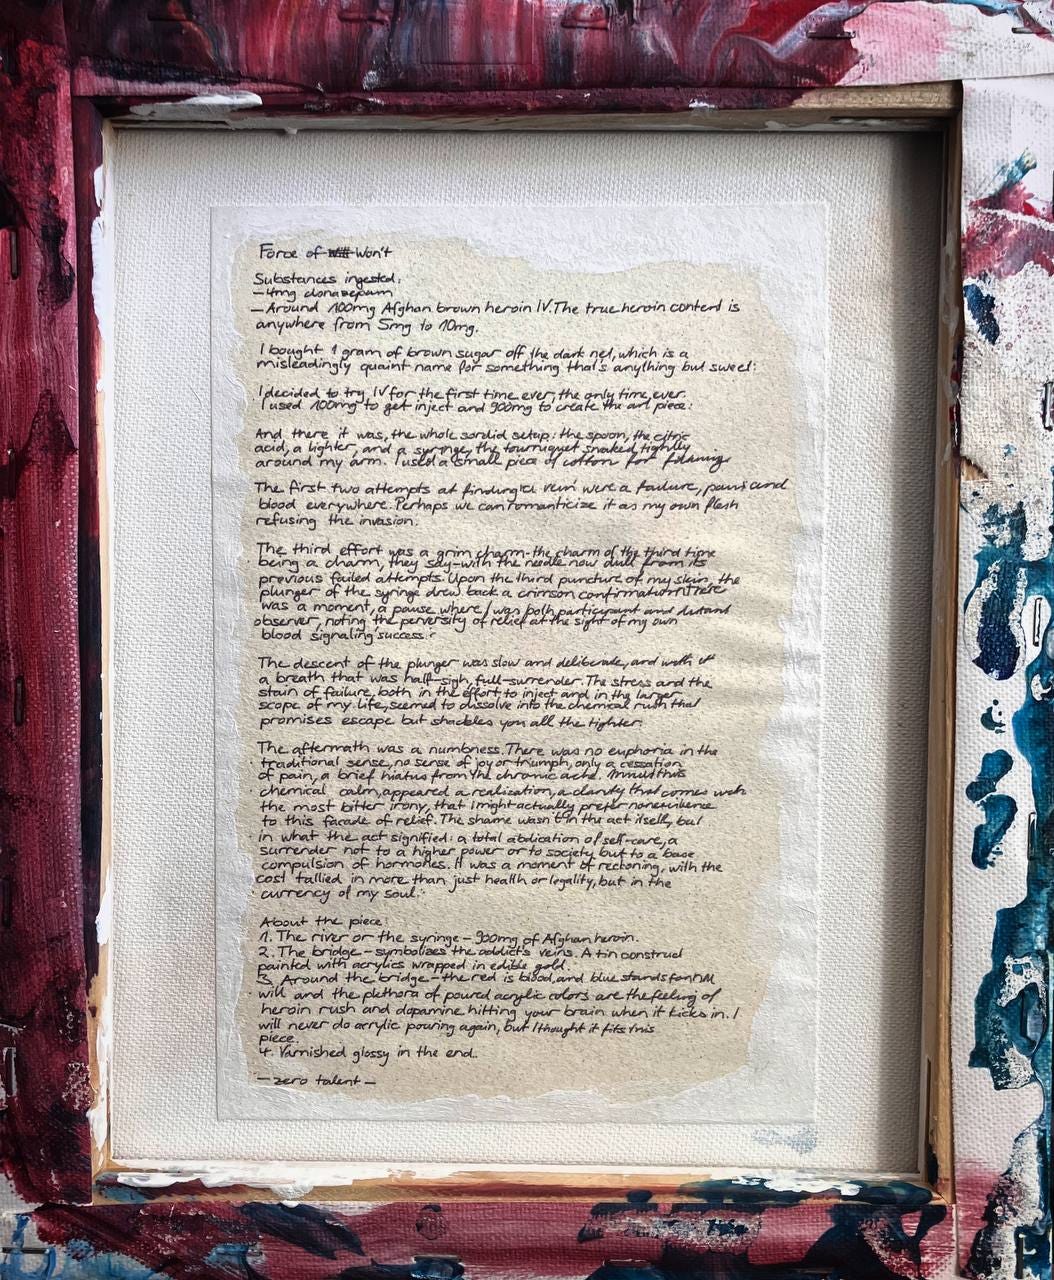 Force of Won't
Substances ingested:
-4mg clonazepam
-Around 100mg Afghan brown heroin IV. The true heroin content is
anywhere from 5mg to 10mg.
I bought 1 gram of brown sugar off the dark net, which is a
misleadingly quaint name for something that's anything but sweet.
I decided to try IV for the first time ever, the only time, ever.
I used 100mg to get inject and 900mg to create the art piece.
And there it was, the whole sordid setup: the spoon, the citric
acid, a lighter, and a syringe, the tourniquet snaked tightly
around my arm. I used a small piece of cotton for
The first two attempts at finding a vein were a failure, pain and
blood everywhere. Perhaps we can romanticize it as my own flesh
refusing the invasion.
The third effort was a grim charm-the charm of the third time
being a charm, they say-with the needle now dull from its
previous failed attempts. Upon the third puncture of my skin, the
plunger of the syringe drew back a crimson confirmation. There
was a moment, a pause where I was both participant and distant
observer, noting the perversity of relief at the sight of my own
blood signaling success.
The descent of the plunger was slow and deliberate, and with it
a breath that was half-sigh, full-surrender. The stress and the
stain of failure, both in the effort to inject and in the larger
scope of my life, seemed to dissolve into the chemical rush that
promises escape but shackles you all the tighter.
The aftermath was a numbness. There was no euphoria in the
traditional sense, no sense of joy or triumph, only a cessation
of pain, a brief hiatus from the chronic ache. Amid this
chemical calm, appeared a realization, a clarity that comes with
the most bitter irony, that I might actually prefer nonexistence
to this facade of relief. The shame wasn't in the act itself, but
in what the act signified: a total abdication of self-care, a
surrender not to a higher power or to society but to a base
compulsion of hormones. It was a moment of reckoning, with the
cost tallied in more than just health or legality, but in the
currency of my soul.
About the piece:
1. The river or the syringe - 900mg of Afghan heroin.
2. The bridge - symbolizes the addict's veins. A tin construct
painted with acrylics wrapped in edible gold.
3. Around the bridge - the red is blood, and blue stands for
will and the plethora of poured acrylic colors are the feeling of
heroin rush and dopamine hitting your brain when it kicks in. I
will never do acrylic pouring again, but I thought it fits this
piece.
4. Varnished glossy in the end.
- zero talent -